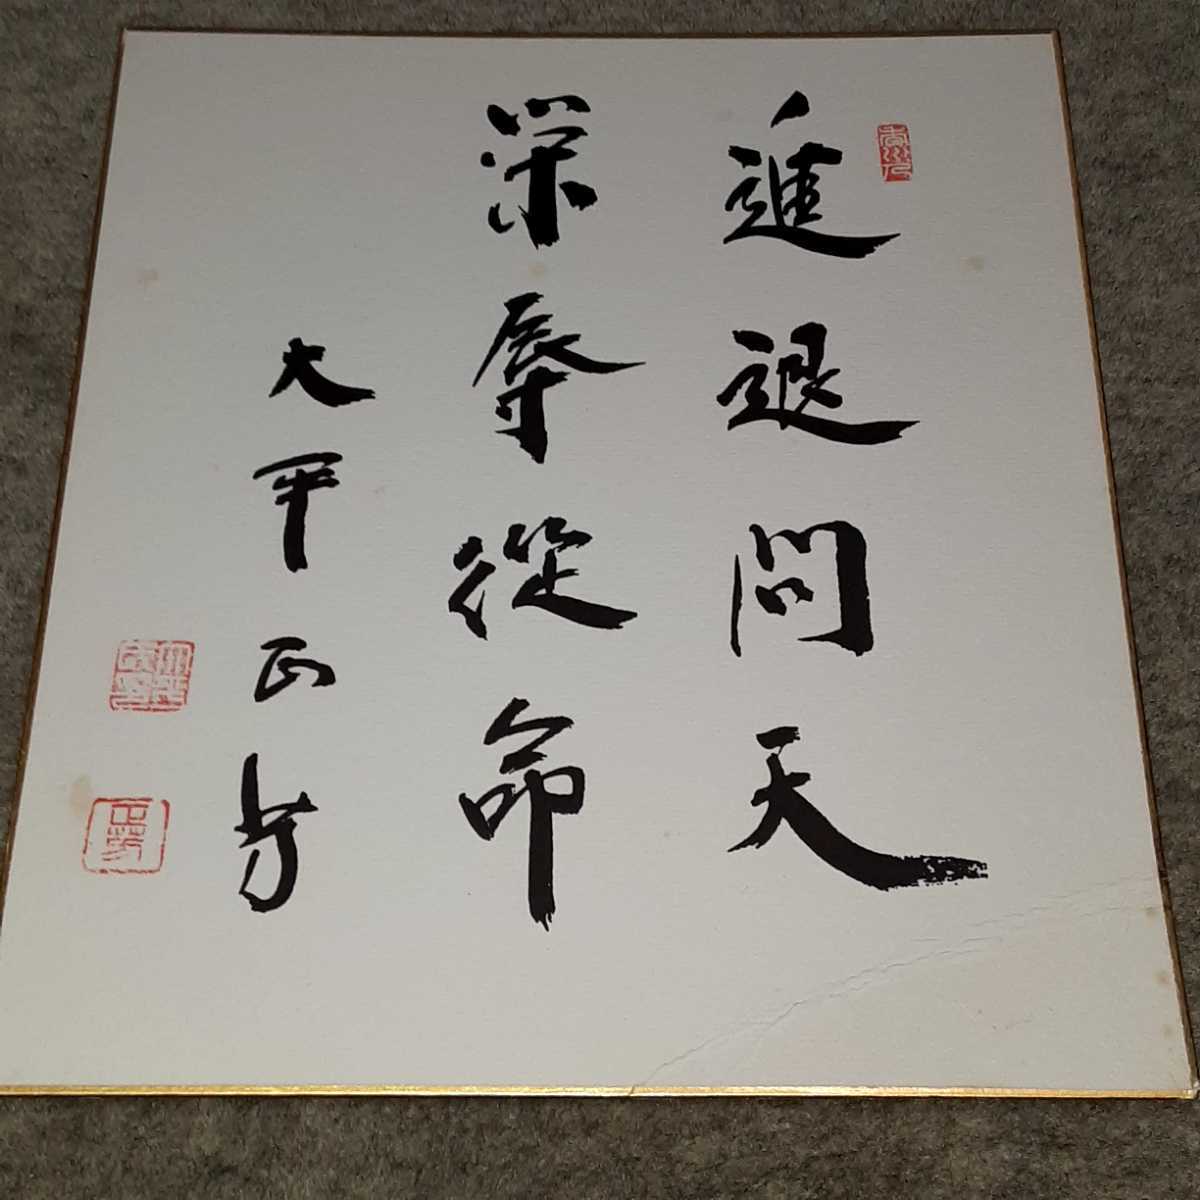 進退問天
栄辱従命
大平正芳
正芳